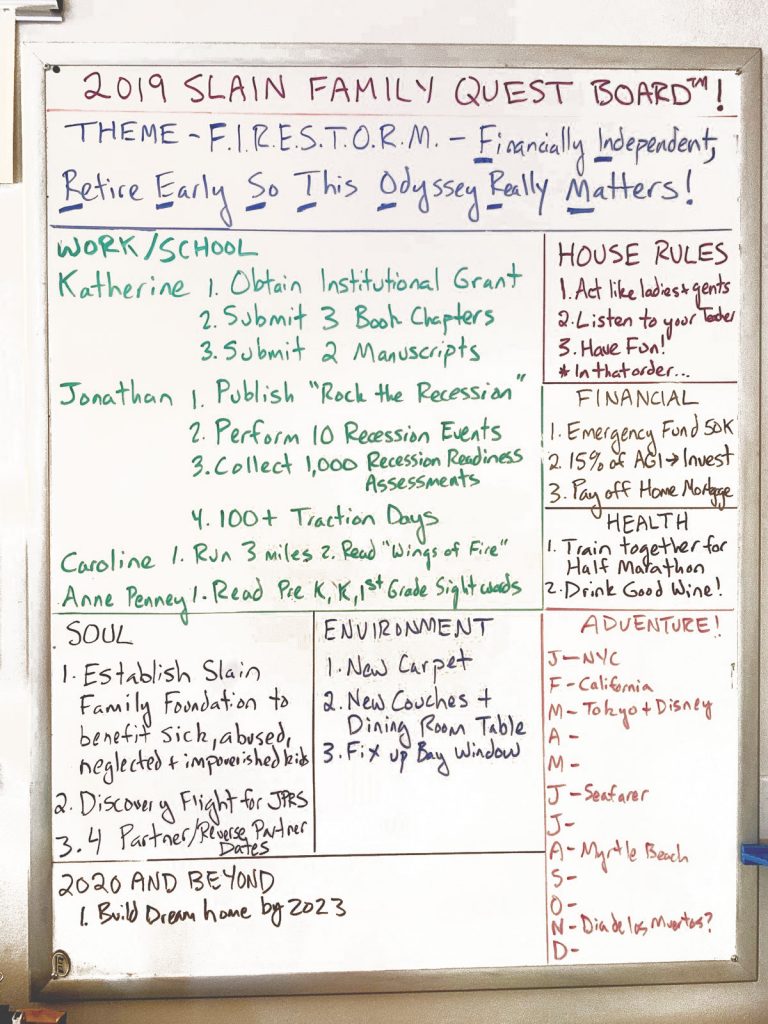 2019 SLAIN FAMILY QUEST BOARD™!
THEME - F.I.R.E.S.T.O.R.M. - Financially Independent,
Retire Early So This Odyssey Really Matters!
WORK/SCHOOL
Katherine 1. Obtain Institutional Grant
2. Submit 3 Book Chapters
3. Submit 2 Manuscripts
Jonathan 1. Publish "Rock the Recession"
2. Perform 10 Recession Events
3. Collect 1,000 Recession Readiness
Assessments
4. 100+ Traction Days
Caroline 1. Run 3 miles 2. Read "Wings of Fire"
Anne Penney 1. Read Pre K, K, 1st Grade Sight words
HOUSE RULES
1. Act like ladies + gents
2. Listen to your
3. Have Fun!
* In that order...
FINANCIAL
1. Emergency Fund 50K
2. 15% of AGI → Invest
3. Pay off Home Mortgage
HEALTH
1. Train together for
Half Marathon
2. Drink Good Wine!
SOUL
1. Establish Slain
Family Foundation to
benefit sick, abused,
neglected + impoverished kids
2. Discovery Flight for JPRS
3. 4 Partner/Reverse Partner
Dates
ENVIRONMENT
1. New Carpet
2. New Couches +
Dining Room Table
3. Fix up Bay Window
ADVENTURE!
J - NYC
F - California
M - Tokyo + Disney
A -
M -
J - Seafarer
J -
A - Myrtle Beach
S -
O -
N - Dia de los Muertos?
D -
2020 AND BEYOND
1. Build Dream home by 2023